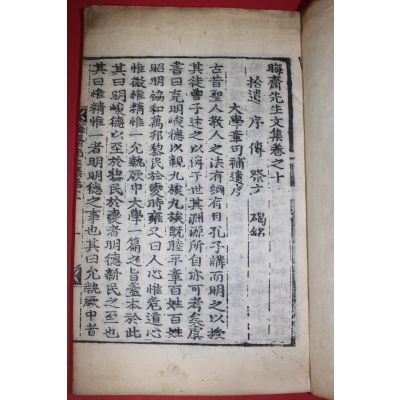 晦齋先生文集卷之十
拾遺 序 傳 祭文 碣銘
大學章句補遺序
古昔聖人敎人之法有綱有目孔子講而明之以授
其徒曾子述之以傳于世其淵源所自亦可考矣虞
書曰克明峻德以親九族九族旣睦平章百姓百姓
昭明協和萬邦黎民於變時雍又曰人心惟危道心
惟微惟精惟一允執厥中大學一篇之旨蓋本於此
其曰明峻德以至於黎民於變者明德新民之至也
其曰惟精惟一者明明德之事也其曰允執厥中者